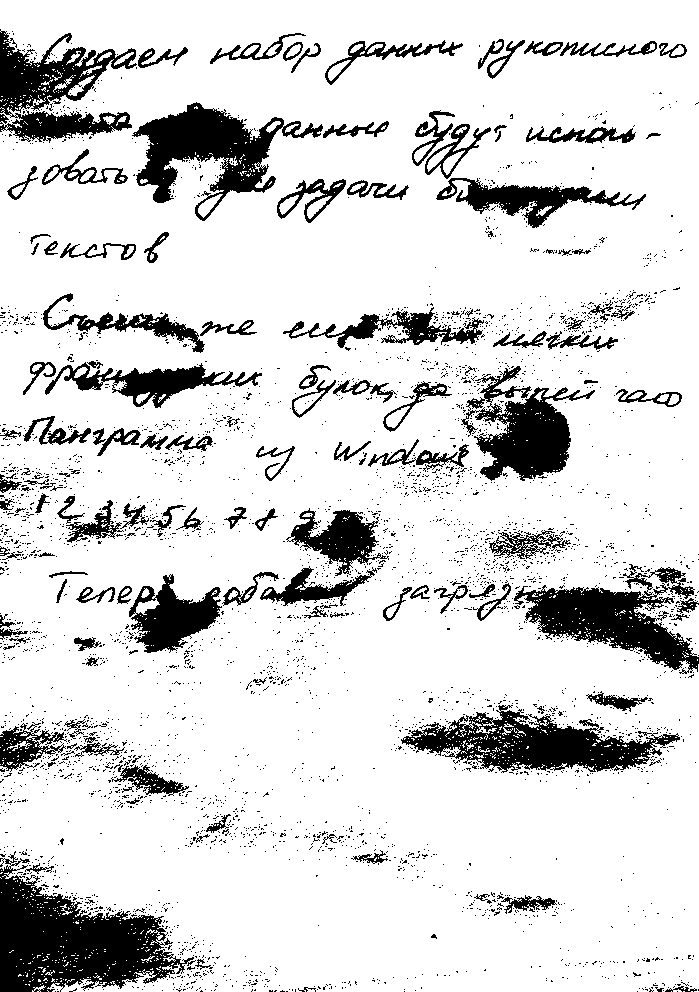 Создаем набор данных рукописного
текста данные будут исполь-
зоваться для задачи бинаризации
текстов
Съешь же ещё этих мягких
французских булок, да выпей чаю
Панграмма из Windows
1 2 3 4 5 6 7 8 9
Теперь добавим загрязнения